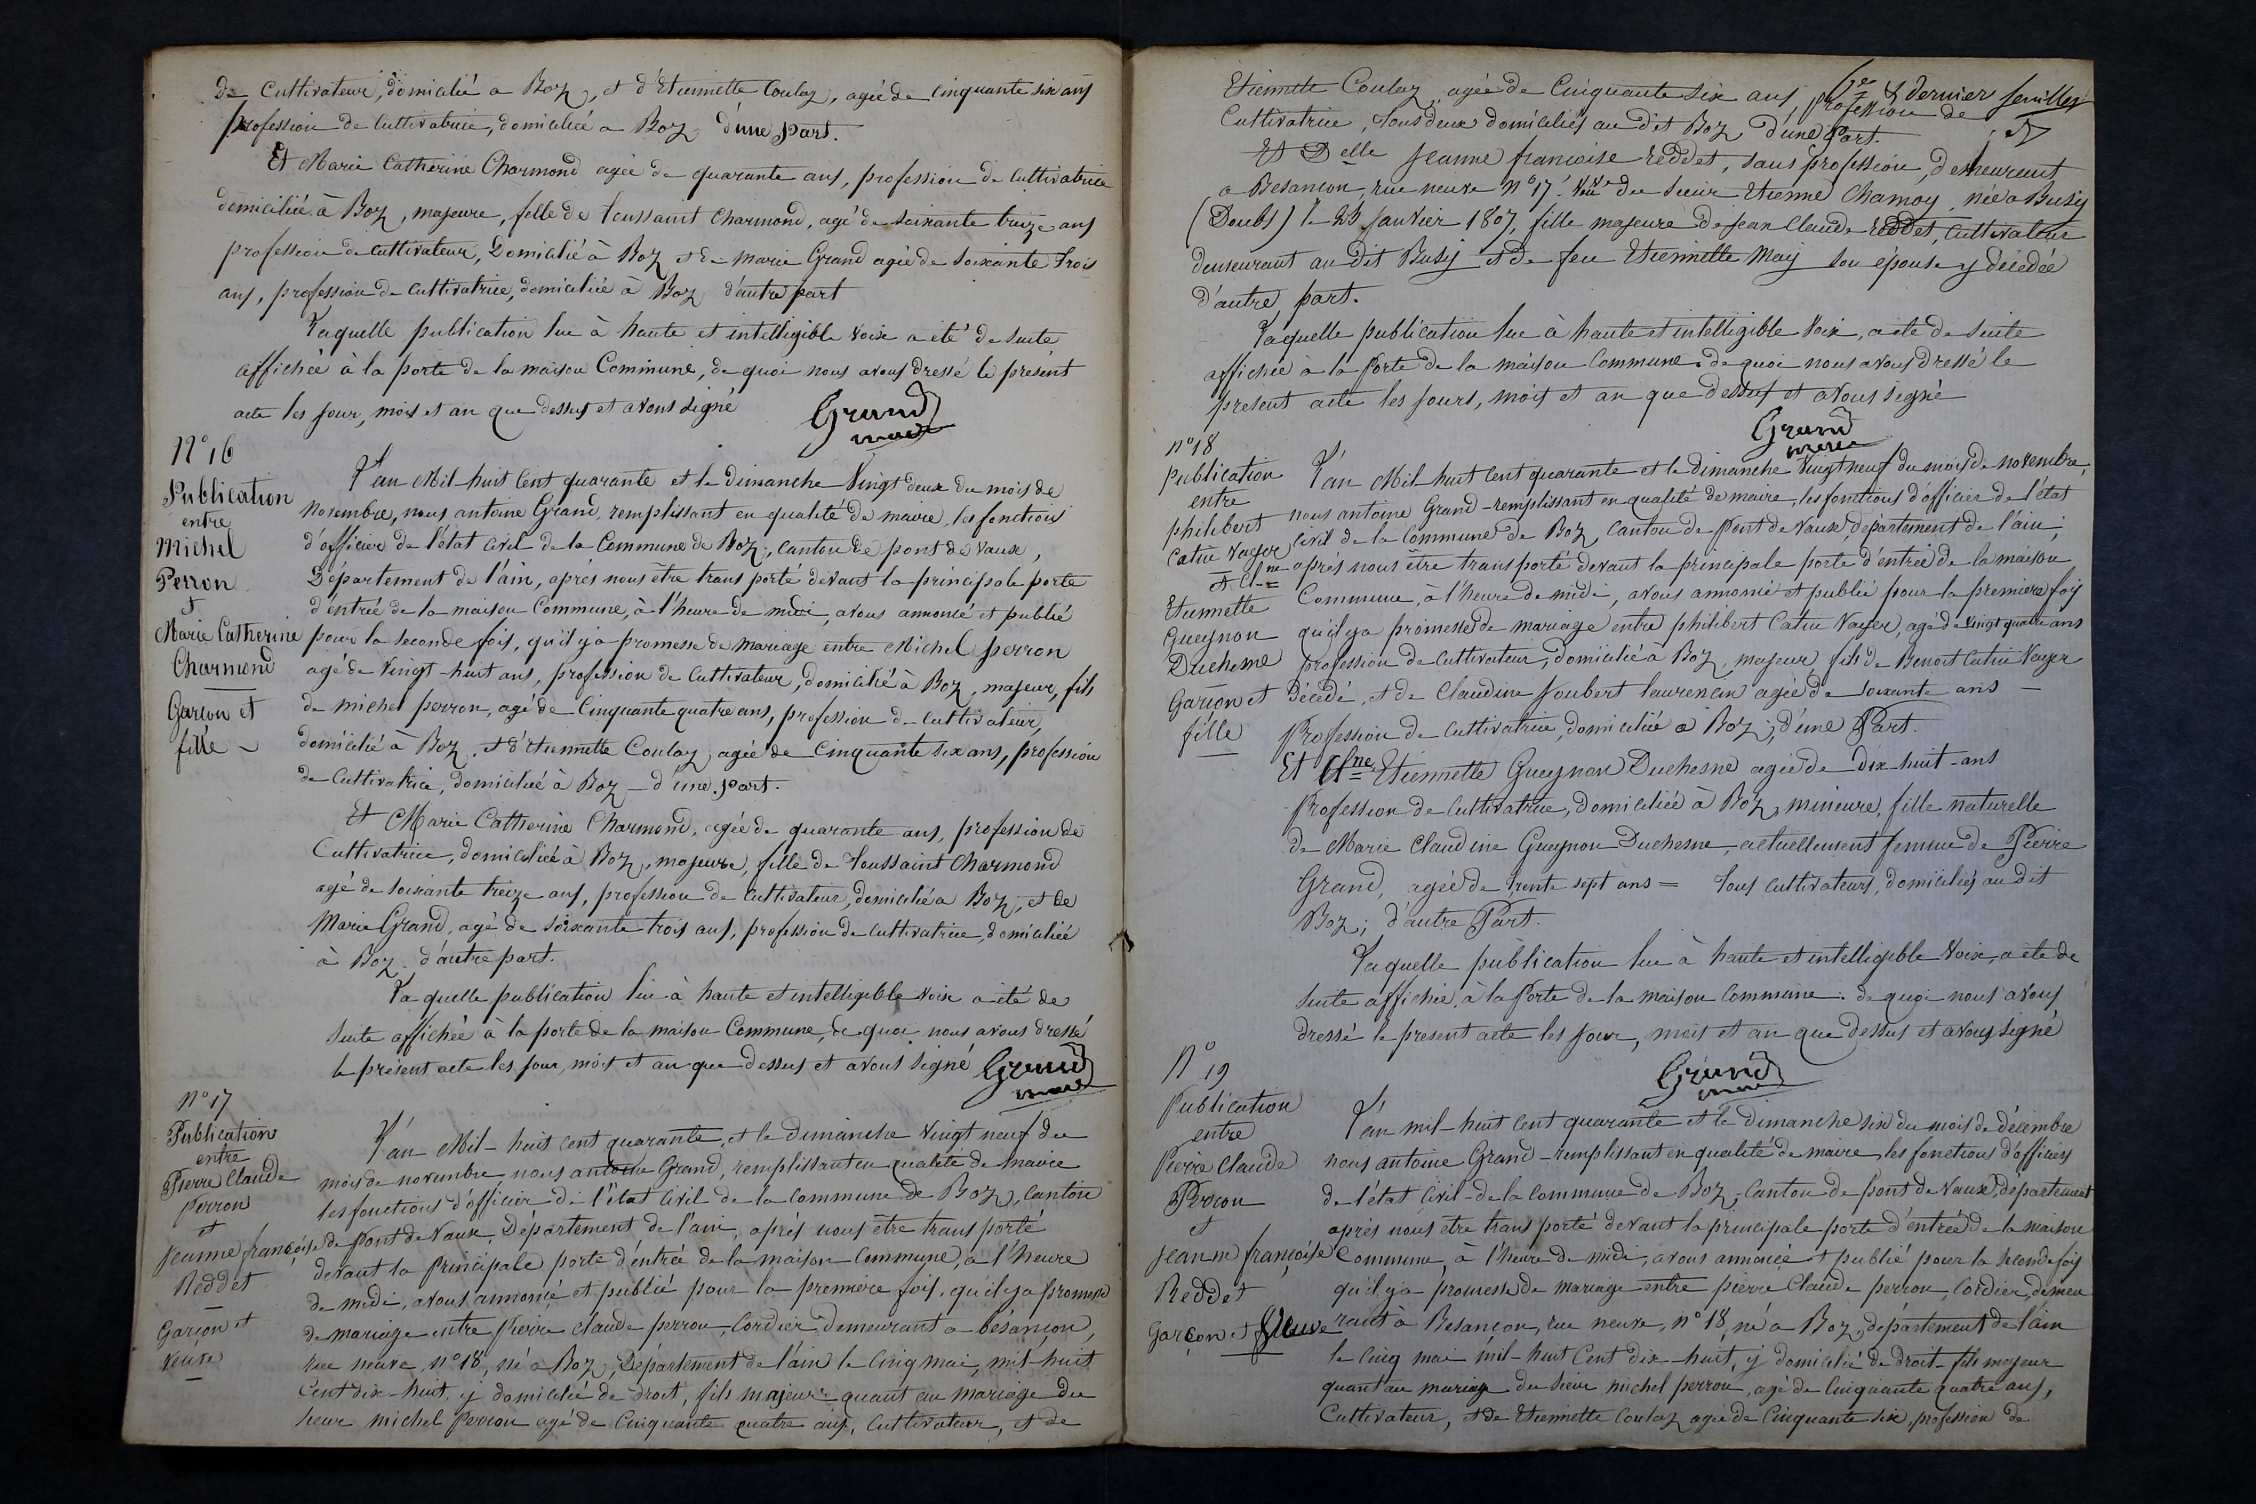 de Cultivateur, domicilié a Boz, et d'Etiennette Coulaz, agée de cinquante six ans
profession de Cultivatrice, domiciliée a Boz d'une part.
Et Marie Catherine Charmond agée de quarante ans, profession de Cultivatrice
domiciliée à Boz, majeure, felle de toussaint Charmond, agé de soixante treize ans
profession de cultivateur, Domicilié à Boz et de marie Grand agée de soixante trois
ans, profession de cultivatrice, domiciliée à Boz d'autre part
Laquelle publication lue à haute et intelligible voix a été de suite
affichée à la porte de la maison Commune, de quoi nous avons dressé le présent
acte les jour, mois et an que dessus et avons signé
Grand
maire
N° 16
Publication
entre
Michel
Perron
et
Marie Catherine
Charmond
Garçon et
fille
L'an Mil huit Cent quarante et le dimanche Vingt deux du mois de
Novembre, nous antoine Grand, remplissant en qualité de maire, les fonctions
d'officier de l'état Civil de la Commune de Boz, canton de pont de Vaux,
Département de l'ain, après nous être trans porté devant la principale porte
d'entrée de la maison Commune, à l'heure de midi, avons annoncé et publié
pour la seconde fois, qu'il y a promesse de mariage entre Michel perron
agé de Vingt-huit ans, profession de Cultivateur, domicilié à Boz, majeur, fils
de michel perron, agé de Cinquante quatre ans, profession de cultivateur,
domicilié à Boz, et d'Etiennette Coulaz agée de Cinquante six ans, profession
de Cultivatrice, domiciliée à Boz - d'une part.
Et Marie Catherine Charmond, agée de quarante ans, profession de
Cultivatrice, domiciliée à Boz, majeure, fille de Toussaint Charmond
agé de soixante treize ans, profession de cultivateur, domicilié a Boz, et de
Marie Grand, agé de soixante trois ans, profession de cultivatrice, domiciliée
à Boz d'autre part.
La quelle publication lue à haute et intelligible voix a été de
suite affichée à la porte de la maison Commune, de quoi nous avons dressé
le présent acte les jour, mois et an que dessus et avons signé
Grand
maire
N° 17
Publication
entre
Pierre Claude
Perron
et
Jeanne françoise
Reddet
Garçon et
veuve
L'an Mil-huit cent quarante, et le dimanche Vingt neuf du
mois de novembre nous antoine Grand, remplissant en qualité de maire
les fonctions d'officier de l'état Civil de la commune de Boz, Canton
de Pont de Vaux, Département de l'ain, après nous être trans porté
devant la Principale porte d'entrée de la maison Commune, a l'heure
de midi, avons annoncé et publié pour la première fois, qu'il y a promesse
de mariage entre Pierre Claude perron, Cordier, demeurant a bésançon,
rue neuve, n° 18, né a Boz, Département de l'ain le cinq mai, mil-huit
Cent dix-huit, y domicilié de droit, fils majeur quant au mariage du
sieur michel perron agé de Cinquante quatre ans, Cultivateur, et de
6e & dernier feuillet
Etiennette Coulaz agée de Cinquante six ans, profession de
Cultivatrice, tous deux domiciliés au dit Boz d'une Part.
Et Delle Jeanne francoise reddet, sans profession, demeurant
a Besançon, rue neuve N° 17, veuve du sieur Etienne Chamoy, née a Busy
(Doubs) le 23 Janvier 1807, fille majeure de Jean Claude Reddet, Cultivateur
demeurant au dit Busy et de feu Etiennette May son épouse y décédée
d'autre part.
Laquelle publication lue à haute et intelligible voix, a été de suite
affichée à la Porte de la maison Commune, de quoi nous avons dressé le
présent acte les jours, mois et an que dessus et avons signé
Grand
maire
n° 18
Publication
entre
philibert
Catin Vayer
et Cl.ne
Etiennette
Gueynon
Duchesne
Garçon et
fille
L'an Mil-huit cent quarante et le dimanche Vingt neuf du mois de novembre,
nous antoine Grand-remplissant en qualité de maire, les fonctions d'officier de l'état
Civil de la Commune de Boz, Canton de Pont de Vaux, département de l'ain,
après nous être transporté devant la principale porte d'entrée de la maison
Commune, à l'heure de midi, avons annoncé et publié pour la première fois
qu'il y a promesse de mariage entre philibert Catin Vayer, agé de vingt quatre ans
profession de Cultivateur, domicilié à Boz, majeur, fils de Benoit Catin Vayer
décédé, et de Claudine Joubert laurencin agée de soixante ans
Profession de cultivatrice, domiciliée a Boz; d'une Part.
Et Cl.ne Etiennette Gueynon Duchesne agée de dix-huit-ans
Profession de Cultivatrice, domiciliée à Boz, mineure, fille naturelle
de Marie Claudine Gueynon Duchesne, actuellement femme de Pierre
Grand, agée de trente sept ans = tous cultivateurs, domiciliés au dit
Boz; d'autre Part.
Laquelle publication lue à haute et intelligible Voix, a été de
suite affichée, à la Porte de la maison Commune. de quoi nous avons
dressé le présent acte les jour, mois et an que dessus et avons signé
Grand
maire
N° 19
Publication
entre
Pierre Claude
Perron
et
Jeanne françoise
Reddet
Garçon et Veuve
L'an mil-huit cent quarante et le dimanche six du mois de décembre
nous antoine Grand-remplissant en qualité de maire, les fonctions d'officiers
de l'état Civil-de la commune de Boz, Canton de pont de Vaux, département
après nous être trans porté devant la principale porte d'entrée de la maison
Commune, à l'heure de midi, avons annoncé et publié pour la seconde fois
qu'il y a promesse de mariage entre pierre Claude perron, Cordier, demeu
rant à Besancon, rue neuve, n° 18, né a Boz, département de l'ain
le cinq mai mil-huit Cent dix-huit, y domicilié de droit-fils majeur
quant au mariage du sieur michel perron, agé de cinquante quatre ans,
Cultivateur, et de Etiennette Coulaz agée de cinquante six, profession de